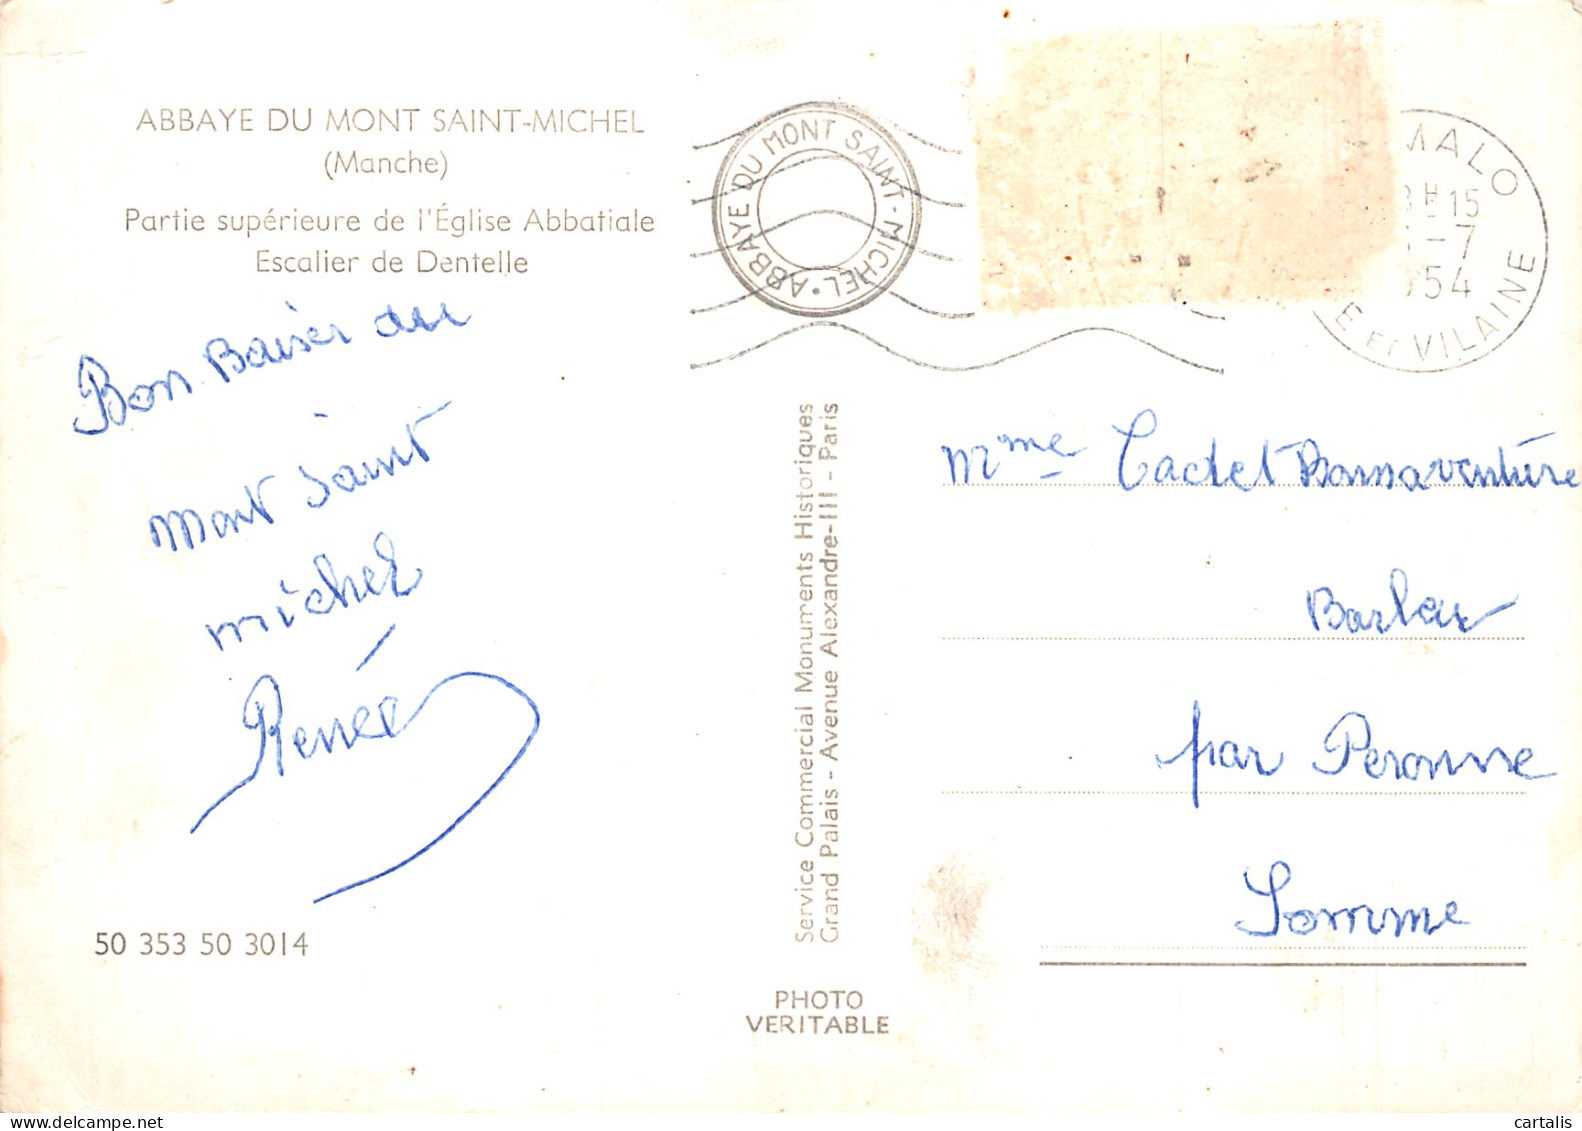 ABBAYE DU MONT SAINT-MICHEL
(Manche)
Partie supérieure de l'Église Abbatiale
Escalier de Dentelle
Bon Baiser du
Mont Saint
Michel
Renée
50 353 50 3014
ABBAYE DU MONT SAINT-MICHEL
MALO
H 15
- 7
54
E ET VILAINE
Service Commercial Monuments Historiques
Grand Palais - Avenue Alexandre-III - Paris
PHOTO
VERITABLE
Mme Cadet Bonnaventure
par Peronne
Somme
cartalis